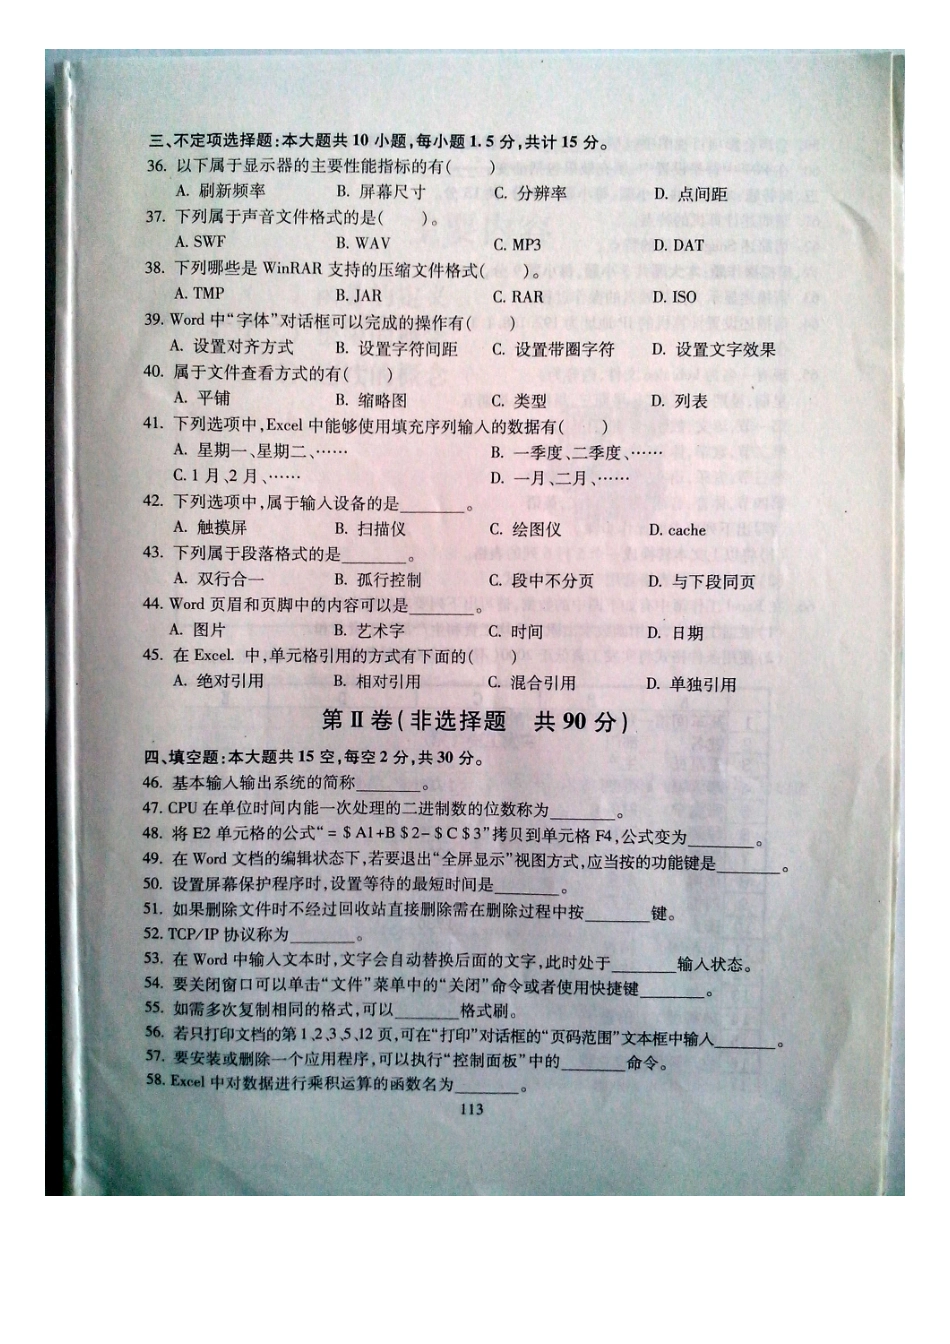 三、不定项选择题:本大题共 10 小题,每小题 1.5 分,共计 15 分。
36. 以下属于显示器的主要性能指标的有(　　)。
A. 刷新频率　B. 屏幕尺寸　C. 分辨率　D. 点间距
37. 下列属于声音文件格式的是(　　)。
A. SWF　B. WAV　C. MP3　D. DAT
38. 下列哪些是 WinRAR 支持的压缩文件格式(　　)。
A. TMP　B. JAR　C. RAR　D. ISO
39. Word 中“字体”对话框可以完成的操作有(　　)
A. 设置对齐方式　B. 设置字符间距　C. 设置带圈字符　D. 设置文字效果
40. 属于文件查看方式的有(　　)
A. 平铺　B. 缩略图　C. 类型　D. 列表
41. 下列选项中,Excel 中能够使用填充序列输入的数据有(　　)
A. 星期一、星期二、……　B. 一季度、二季度、……
C. 1 月、2 月、……　D. 一月、二月、……
42. 下列选项中,属于输入设备的是______。
A. 触摸屏　B. 扫描仪　C. 绘图仪　D. cache
43. 下列属于段落格式的是______。
A. 双行合一　B. 孤行控制　C. 段中不分页　D. 与下段同页
44. Word 页眉和页脚中的内容可以是______。
A. 图片　B. 艺术字　C. 时间　D. 日期
45. 在 Excel. 中,单元格引用的方式有下面的(　　)
A. 绝对引用　B. 相对引用　C. 混合引用　D. 单独引用
第 Ⅱ 卷(非选择题　共 90 分)
四、填空题:本大题共 15 空,每空 2 分,共 30 分。
46. 基本输入输出系统的简称______。
47. CPU 在单位时间内能一次处理的二进制数的位数称为______。
48. 将 E2 单元格的公式“= $ A1+B $ 2- $ C $ 3”拷贝到单元格 F4,公式变为______。
49. 在 Word 文档的编辑状态下,若要退出“全屏显示”视图方式,应当按的功能键是______。
50. 设置屏幕保护程序时,设置等待的最短时间是______。
51. 如果删除文件时不经过回收站直接删除需在删除过程中按______键。
52. TCP/IP 协议称为______。
53. 在 Word 中输入文本时,文字会自动替换后面的文字,此时处于______输入状态。
54. 要关闭窗口可以单击“文件”菜单中的“关闭”命令或者使用快捷键______。
55. 如需多次复制相同的格式,可以______格式刷。
56. 若只打印文档的第 1、2、3、5、12 页,可在“打印”对话框的“页码范围”文本框中输入______。
57. 要安装或删除一个应用程序,可以执行“控制面板”中的______命令。
58. Excel 中对数据进行乘积运算的函数名为______。
113